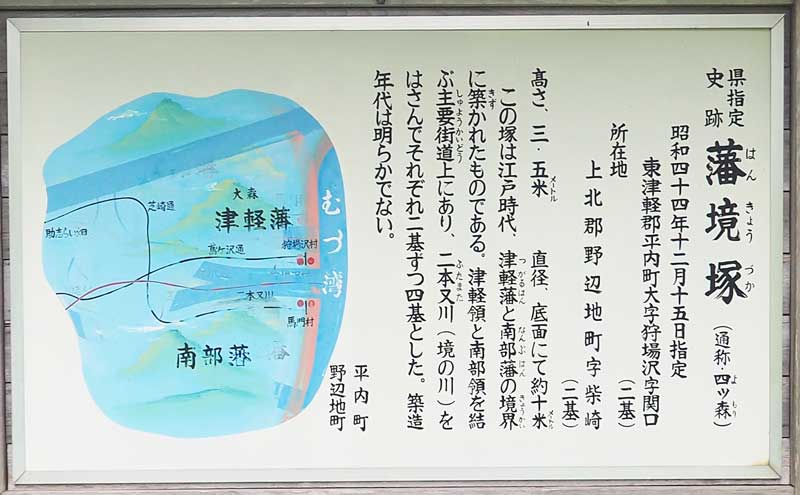 県指定
史跡
藩境塚
はん きょう づか
(通称・四ツ森)
よ もり
昭和四十四年十二月十五日指定
東津軽郡平内町大字狩場沢字関口
(二基)
所在地
上北郡野辺地町字柴崎
(二基)
高さ、三・五米 直径、底面にて約十米
メートル メートル
この塚は江戸時代、津軽藩と南部藩の境界
つがるはん なんぶはん きょうかい
に築かれたものである。津軽領と南部領を結
きず
ぶ主要街道上にあり、二本又川(境の川)を
しゅようかいどう ふたまた
はさんでそれぞれ二基ずつ四基とした。築造
年代は明らかでない。
平内町
野辺地町
むつ湾
大森
津軽藩
芝崎通
狩場沢村
馬ケ沢通
二本又川
馬門村
南部藩